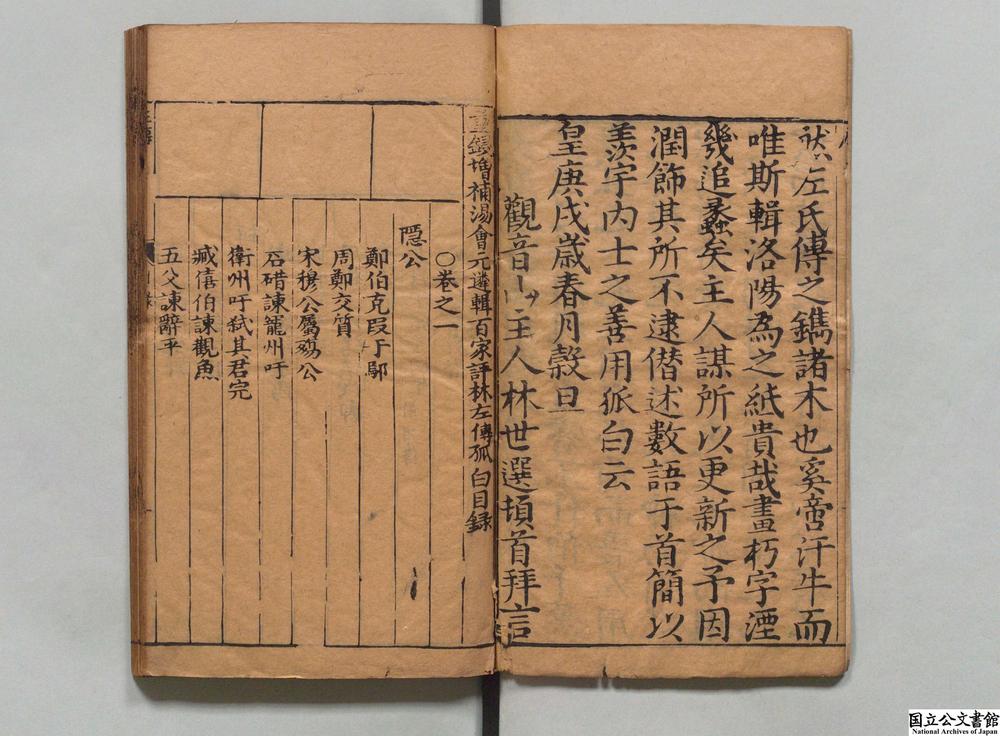 然左氏傳之鐫諸木也奚啻汗牛而
唯斯輯洛陽為之紙貴哉畫朽字湮
幾追蠡矣主人謀所以更新之予因
潤飾其所不逮僭述數語于首簡以
羨宇內士之善用狐白云
皇庚戌歲春月穀旦
觀音山主人林世選頓首拜言
重鋟增補湯會元遴輯百家評林左傳狐白目錄
○卷之一
隱公
鄭伯克段于鄢
周鄭交質
宋穆公屬殤公
石碏諫寵州吁
衛州吁弒其君完
臧僖伯諫觀魚
五父諫辭平
国立公文書館
National Archives of Japan